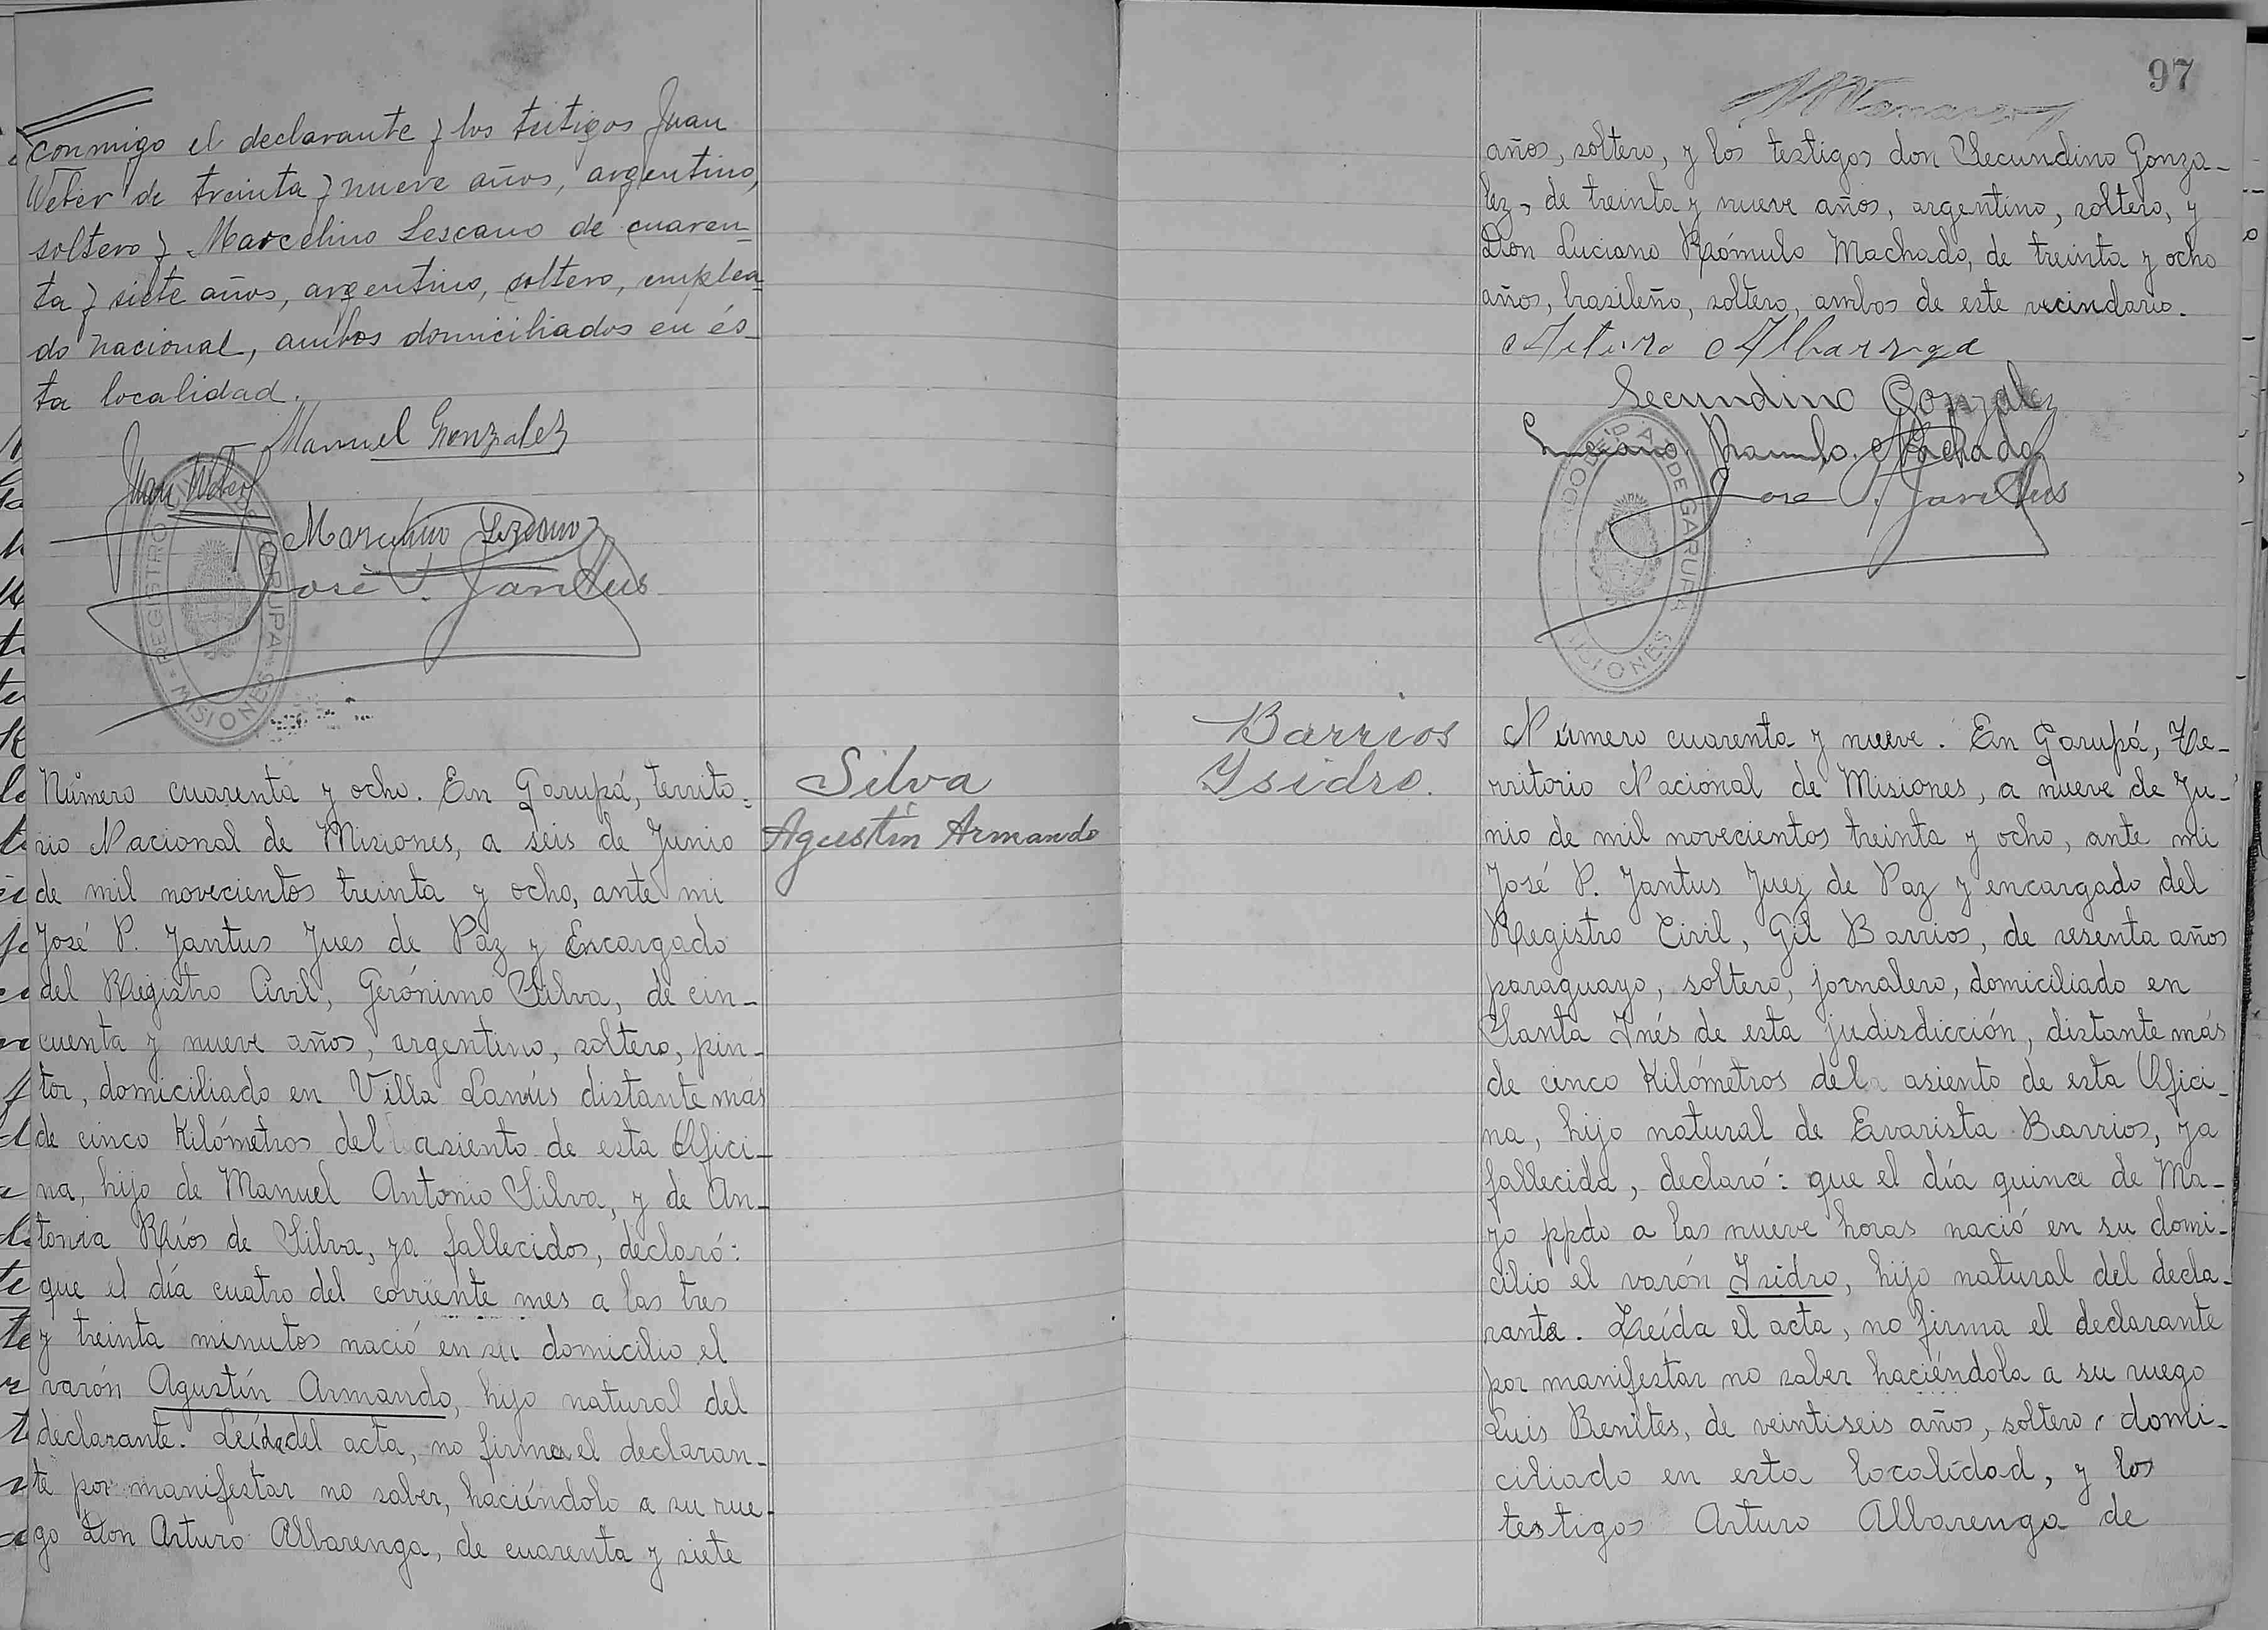 conmigo el declarante y los testigos Juan
Weber de treinta y nueve años, argentino,
soltero y Marcelino Lescano de cuaren-
ta y siete años, argentino, soltero, emplea-
do nacional, ambos domiciliados en és-
ta localidad.
Manuel Gonzalez
Juan Weber
Marcelino Lezcano
José P. Jantus
REGISTRO CIVIL GARUPA
MISIONES
Número cuarenta y ocho. En Garupá, territo-
rio Nacional de Misiones, a seis de Junio
de mil novecientos treinta y ocho, ante mi
José P. Jantus Jues de Paz y Encargado
del Registro Civil, Gerónimo Silva, de cin-
cuenta y nueve años, argentino, soltero, pin-
tor, domiciliado en Villa Lanús distante más
de cinco Kilómetros del asiento de esta Ofici-
na, hijo de Manuel Antonio Silva, y de An-
tonia Ríos de Silva, ya fallecidos, declaró:
que el día cuatro del corriente mes a las tres
y treinta minutos nació en su domicilio el
varón Agustín Armando, hijo natural del
declarante. Leída el acta, no firma el declaran-
te por manifestar no saber, haciéndolo a su rue-
go Don Arturo Albarenga, de cuarenta y siete
Silva
Agustín Armando
97
años, soltero, y los testigos don Secundino Gonza-
lez, de treinta y nueve años, argentino, soltero, y
Don Luciano Rómulo Machado, de treinta y ocho
años, brasileño, soltero, ambos de este vecindario.
Arturo Albarenga
Secundino Gonzalez
Luciano Romulo Machado
José P. Jantus
JUZGADO DE PAZ DE GARUPA
MISIONES
Barrios
Ysidro.
Número cuarenta y nueve. En Garupá, Te-
rritorio Nacional de Misiones, a nueve de Ju-
nio de mil novecientos treinta y ocho, ante mi
José P. Jantus Juez de Paz y encargado del
Registro Civil, Gil Barrios, de sesenta años
paraguayo, soltero, jornalero, domiciliado en
Santa Inés de esta judisdicción, distante más
de cinco Kilómetros del asiento de esta Ofici-
na, hijo natural de Evarista Barrios, ya
fallecida, declaró: que el día quince de Ma-
yo ppdo a las nueve horas nació en su domi-
cilio el varón Isidro, hijo natural del decla-
rante. Leída el acta, no firma el declarante
por manifestar no saber haciéndola a su ruego
Luis Benites, de veintiseis años, soltero, domi-
ciliado en esta localidad, y los
testigos Arturo Albarenga de